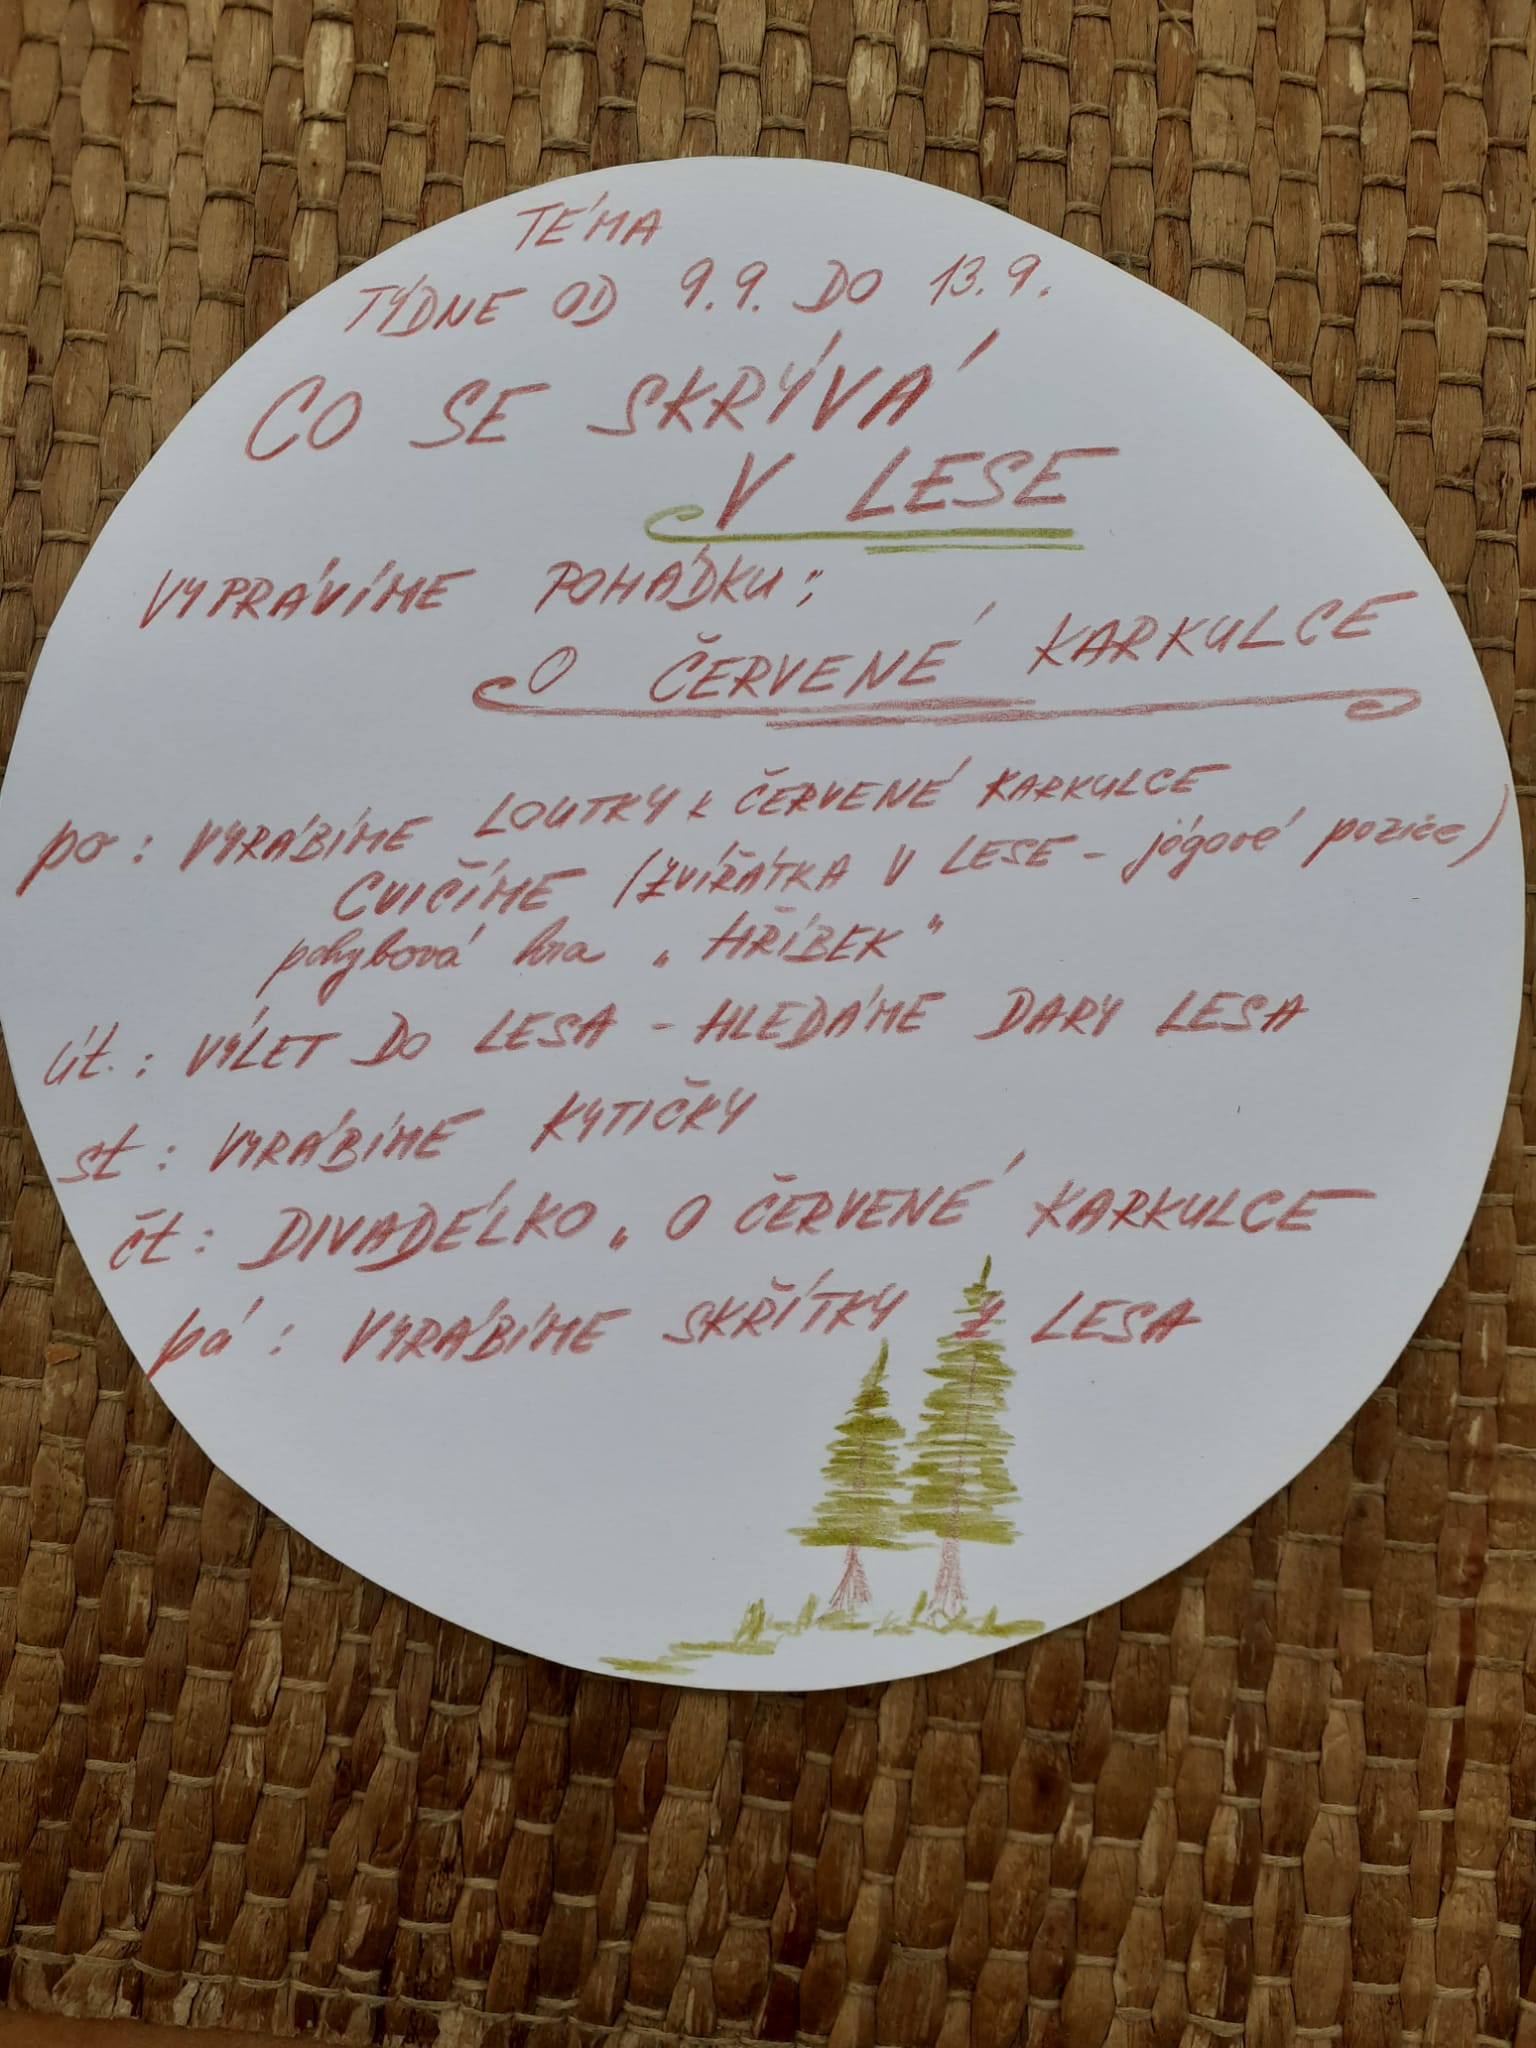 TÉMA
TÝDNE OD 9.9. DO 13.9.
CO SE SKRÝVÁ
V LESE
VYPRÁVÍME POHÁDKU:
O ČERVENÉ KARKULCE
po: VYRÁBÍME LOUTKY k ČERVENÉ KARKULCE
CVIČÍME (ZVÍŘÁTKA V LESE - jógové pozice)
pohybová hra „HŘÍBEK"
út.: VÝLET DO LESA - HLEDÁME DARY LESA
st: VYRÁBÍME KYTIČKY
čt: DIVADÉLKO „O ČERVENÉ KARKULCE
pá: VYRÁBÍME SKŘÍTKY Z LESA